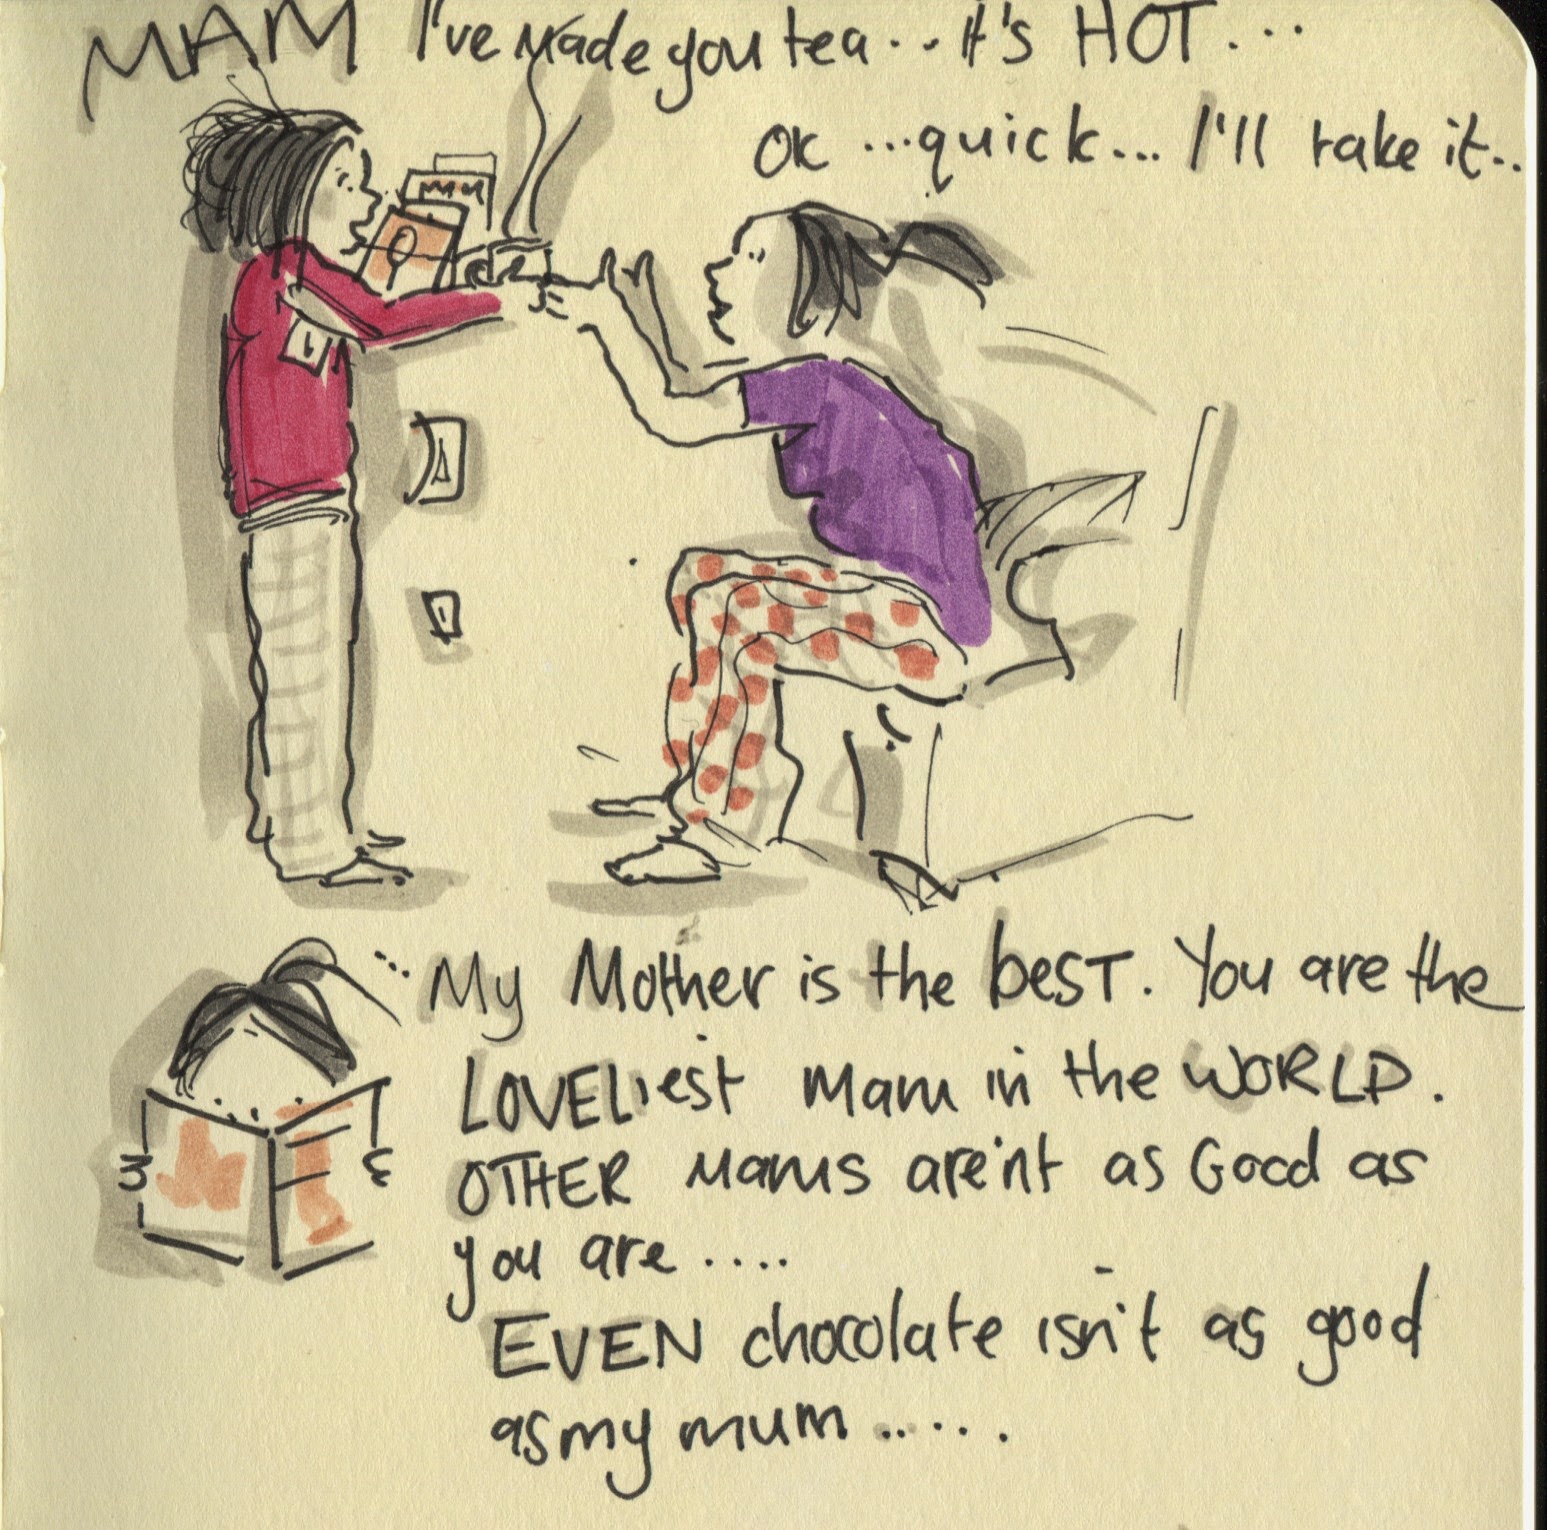 MAM I've made you tea... It's HOT...
OK ...quick... I'll take it..
...My Mother is the best. You are the
LOVELiest Mam in the WORLD.
OTHER Mams are'nt as Good as
you are....
EVEN chocolate isn't as good
as my mum.....